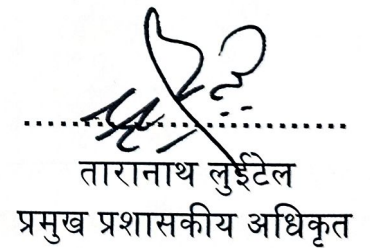 तारानाथ लुईटेल
प्रमुख प्रशासकीय अधिकृत